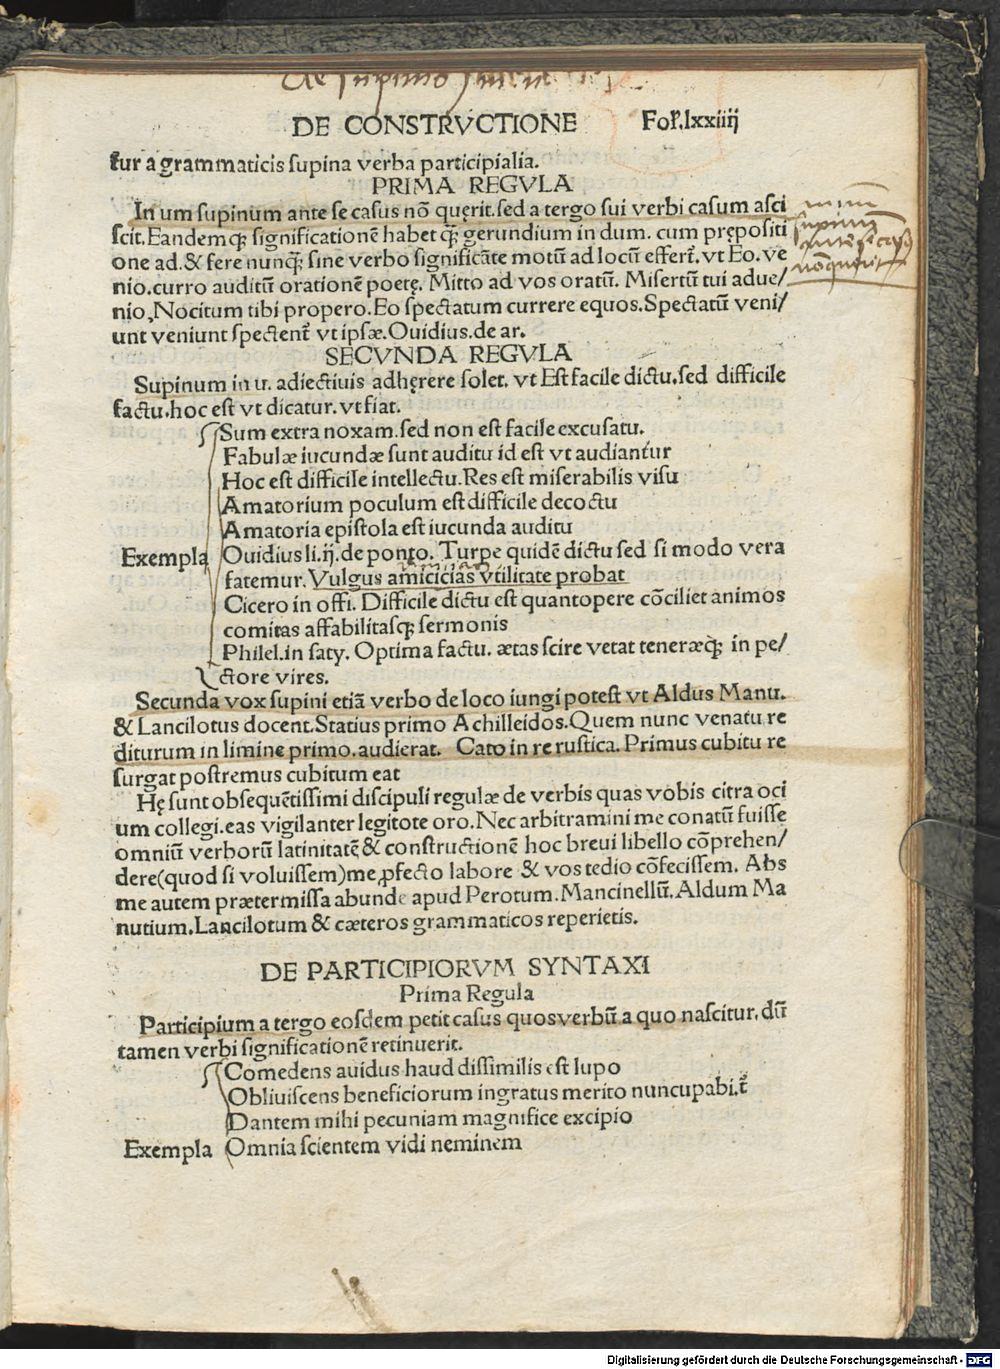 de supino
DE CONSTRVCTIONE Fol. lxxiiij
tur a grammaticis supina verba participialia.
PRIMA REGVLA
In um supinum ante se casus nõ quęrit. sed a tergo sui verbi casum asci
scit. Eandemqꝫ significationẽ habet qꝫ gerundium in dum. cum prępositi
one ad. & fere nunqꝫ sine verbo significãte motũ ad locũ effert̃. vt Eo. ve
nio. curro auditũ orationẽ poetę. Mitto ad vos oratũ. Misertũ tui adue/
nio, Nocitum tibi propero. Eo spectatum currere equos. Spectatũ veni/
unt veniunt spectent̃ vt ipsæ. Ouidius. de ar.
num
supinũ
ante se casus
nõ querit
SECVNDA REGVLA
Supinum in u. adiectiuis adhęrere solet. vt Est facile dictu. sed difficile
factu. hoc est vt dicatur. vt fiat.
Sum extra noxam. sed non est facile excusatu.
Fabulæ iucundæ sunt auditu id est vt audiantur
Hoc est difficile intellectu. Res est miserabilis visu
Amatorium poculum est difficile decoctu
Amatoria epistola est iucunda auditu
Exempla Ouidius li. ij. de ponto. Turpe quidẽ dictu sed si modo vera
fatemur. Vulgus amicicias vtilitate probat
Cicero in offi. Difficile dictu est quantopere cõciliet animos
comitas affabilitasqꝫ sermonis
Philel. in saty. Optima factu. ætas scire vetat teneræqꝫ in pe/
ctore vires.
Secunda vox supini etiã verbo de loco iungi potest vt Aldus Manu.
& Lancilotus docent. Statius primo Achilleidos. Quem nunc venatu re
diturum in limine primo. audierat. Cato in re rustica. Primus cubitu re
surgat postremus cubitum eat
Hę sunt obsequẽtissimi discipuli regulæ de verbis quas vobis citra oci
um collegi. eas vigilanter legitote oro. Nec arbitramini me conatũ fuisse
omniũ verborũ latinitatẽ & constructionẽ hoc breui libello cõprehen/
dere (quod si voluissem) me ꝓfecto labore & vos tedio cõfecissem. Abs
me autem prætermissa abunde apud Perotum. Mancinellũ. Aldum Ma
nutium. Lancilotum & cæteros grammaticos reperietis.
DE PARTICIPIORVM SYNTAXI
Prima Regula
Participium a tergo eosdem petit casus quos verbũ a quo nascitur, dũ
tamen verbi significationẽ retinuerit.
Comedens auidus haud dissimilis est lupo
Obliuiscens beneficiorum ingratus merito nuncupabit̃
Dantem mihi pecuniam magnifice excipio
Exempla Omnia scientem vidi neminem
Digitalisierung gefördert durch die Deutsche Forschungsgemeinschaft - DFG